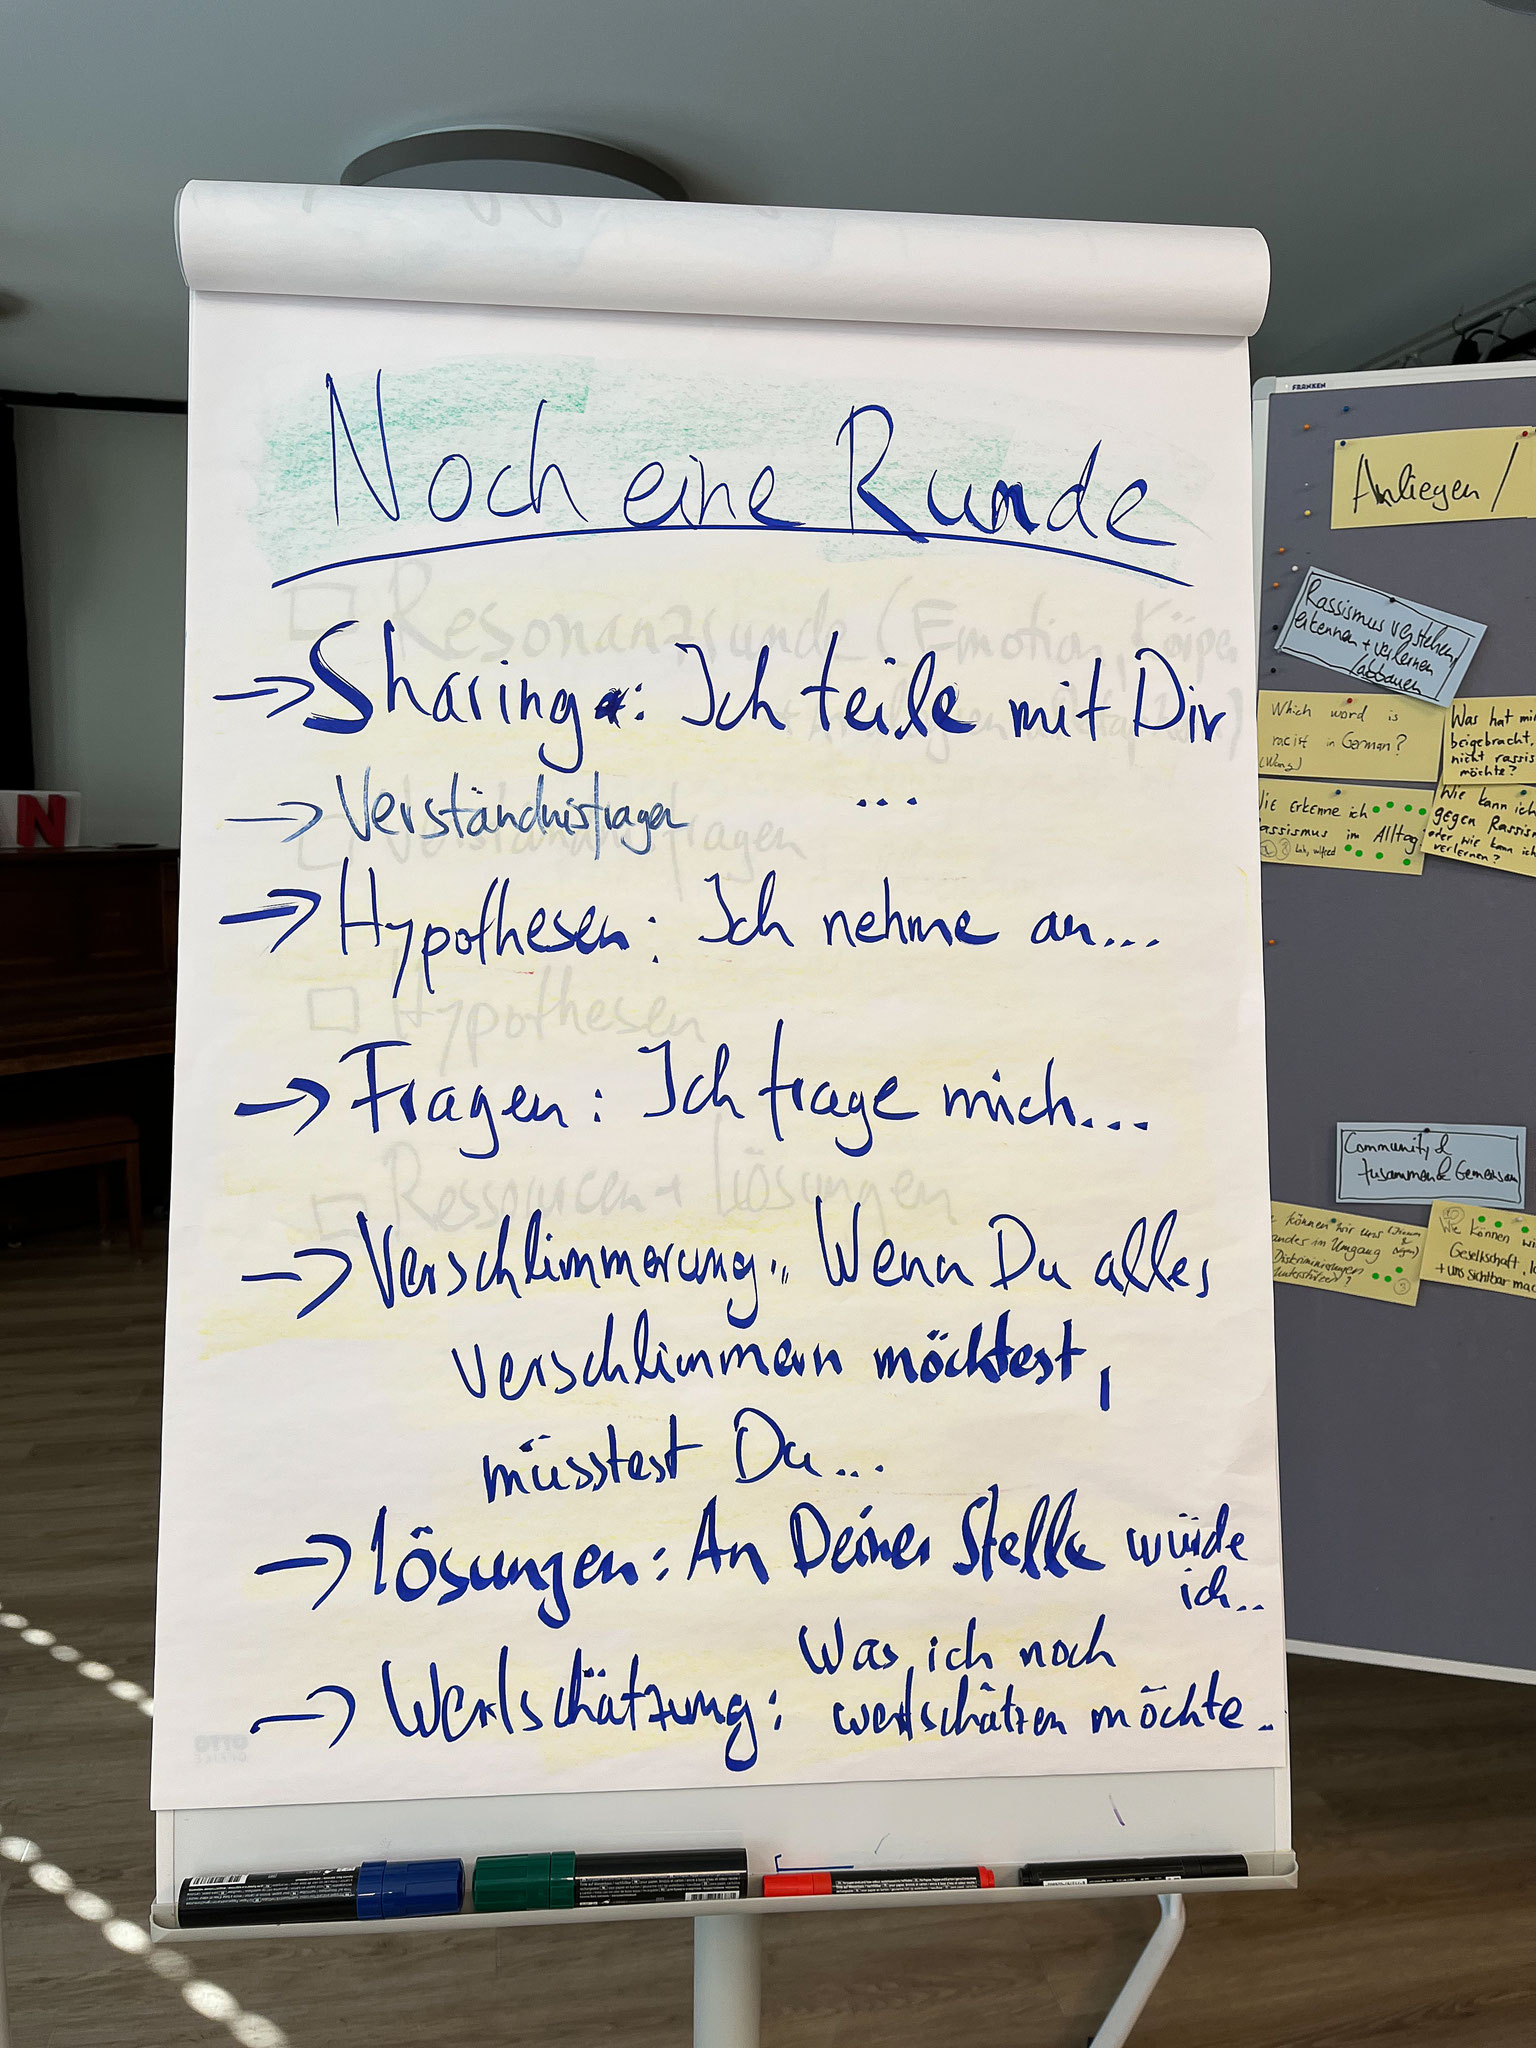 Noch eine Runde
→ Sharing: Ich teile mit Dir
...
→ Verständnisfragen
→ Hypothesen: Ich nehme an...
→ Fragen: Ich frage mich...
→ Verschlimmerung: Wenn Du alles
verschlimmern möchtest,
müsstest Du...
→ Lösungen: An Deiner Stelle würde
ich..
→ Wertschätzung: Was ich noch
wertschätzen möchte.
Resonanzrunde (Emotion, Körper
Verständnisfragen
Hypothesen
Ressourcen + Lösungen
OTTO
OFFICE
N
FRANKEN
Anliegen /
Rassismus verstehen,
erkennen + verlernen
/abbauen
Which word is
racist in German?
Was hat mi
beigebracht,
nicht rassis
möchte?
Wie erkenne ich
Rassismus im Alltag
Wie kann ich
gegen Rassis
oder wie kann ich
verlernen?
Community &
zusammen & Gemeinsam
können wir uns
im Umgang
Diskriminierungen
unterstützen?
Wie können wi
Gesellschaft
+ uns sichtbar mac